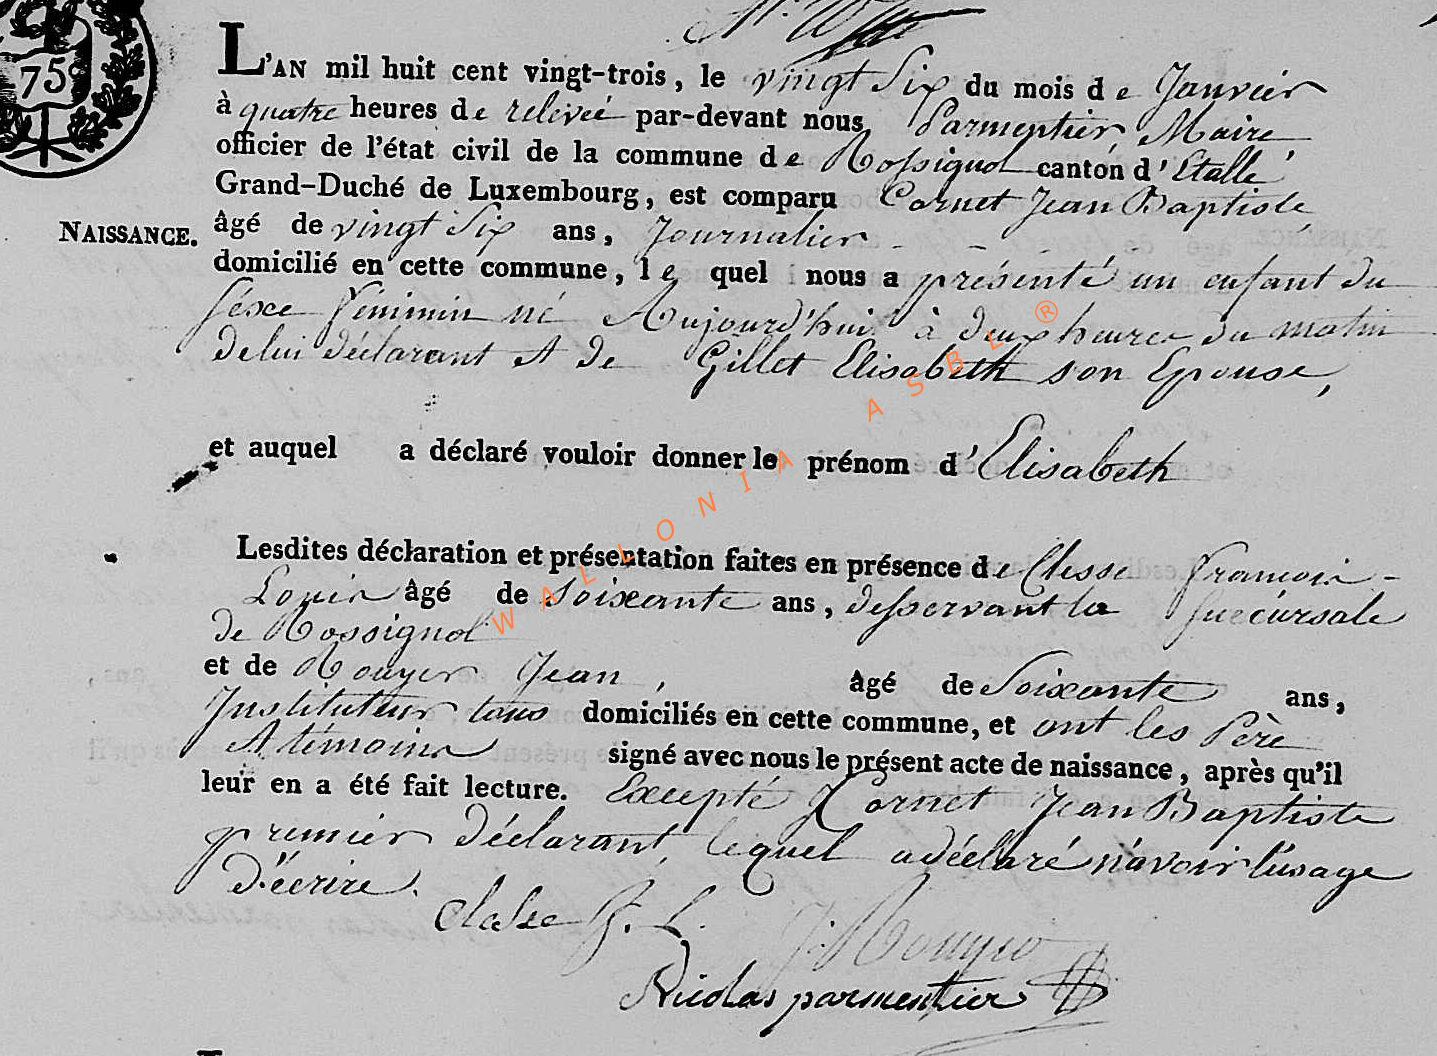 75
L'AN mil huit cent vingt-trois, le vingt Six du mois de Janvier
à quatre heures de relévée par-devant nous Parmentier, Maire
officier de l'état civil de la commune de Rossignol canton d'Etalle
Grand-Duché de Luxembourg, est comparu Cornet Jean Baptiste
NAISSANCE. âgé de vingt Six ans, Journalier - -
domicilié en cette commune, le quel nous a présenté un enfant du
séxe féminin né Aujourd'hui à deux heures du matin
de lui déclarant et de Gillet Elisabeth son Epouse,
et auquel a déclaré vouloir donner le prénom d'Elisabeth
Lesdites déclaration et présentation faites en présence de Clesse François -
Louis âgé de Soixante ans, desservant la succursale
de Rossignol
et de Rouyer Jean, âgé de Soixante ans,
Instituteur tous domiciliés en cette commune, et ont les Père
et témoins signé avec nous le présent acte de naissance, après qu'il
leur en a été fait lecture. Excepté Cornet Jean Baptiste
premier déclarant, lequel a déclaré n'avoir l'usage
d'écrire.
Clesse F. L.
J: Rouyer
Nicolas parmentier
WALLONIA ASBL ®